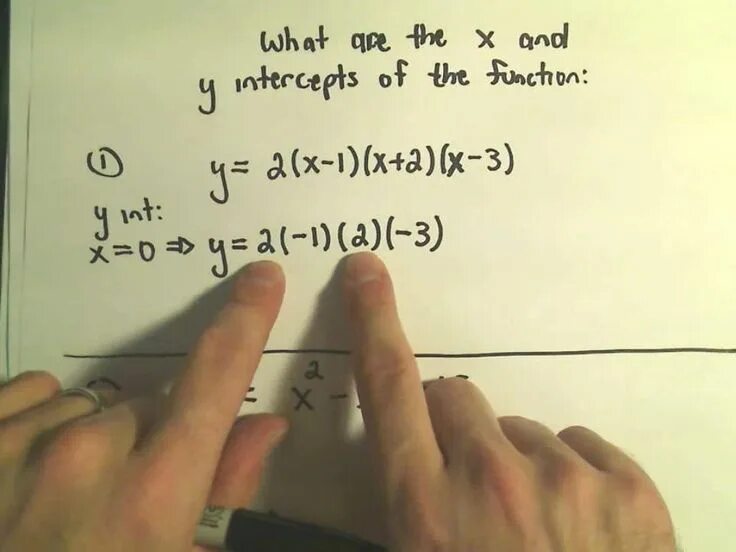 What are the x and
y intercepts of the function:
① y = 2(x-1)(x+2)(x-3)
y int:
x=0 ⇒ y = 2(-1)(2)(-3)
= x² -